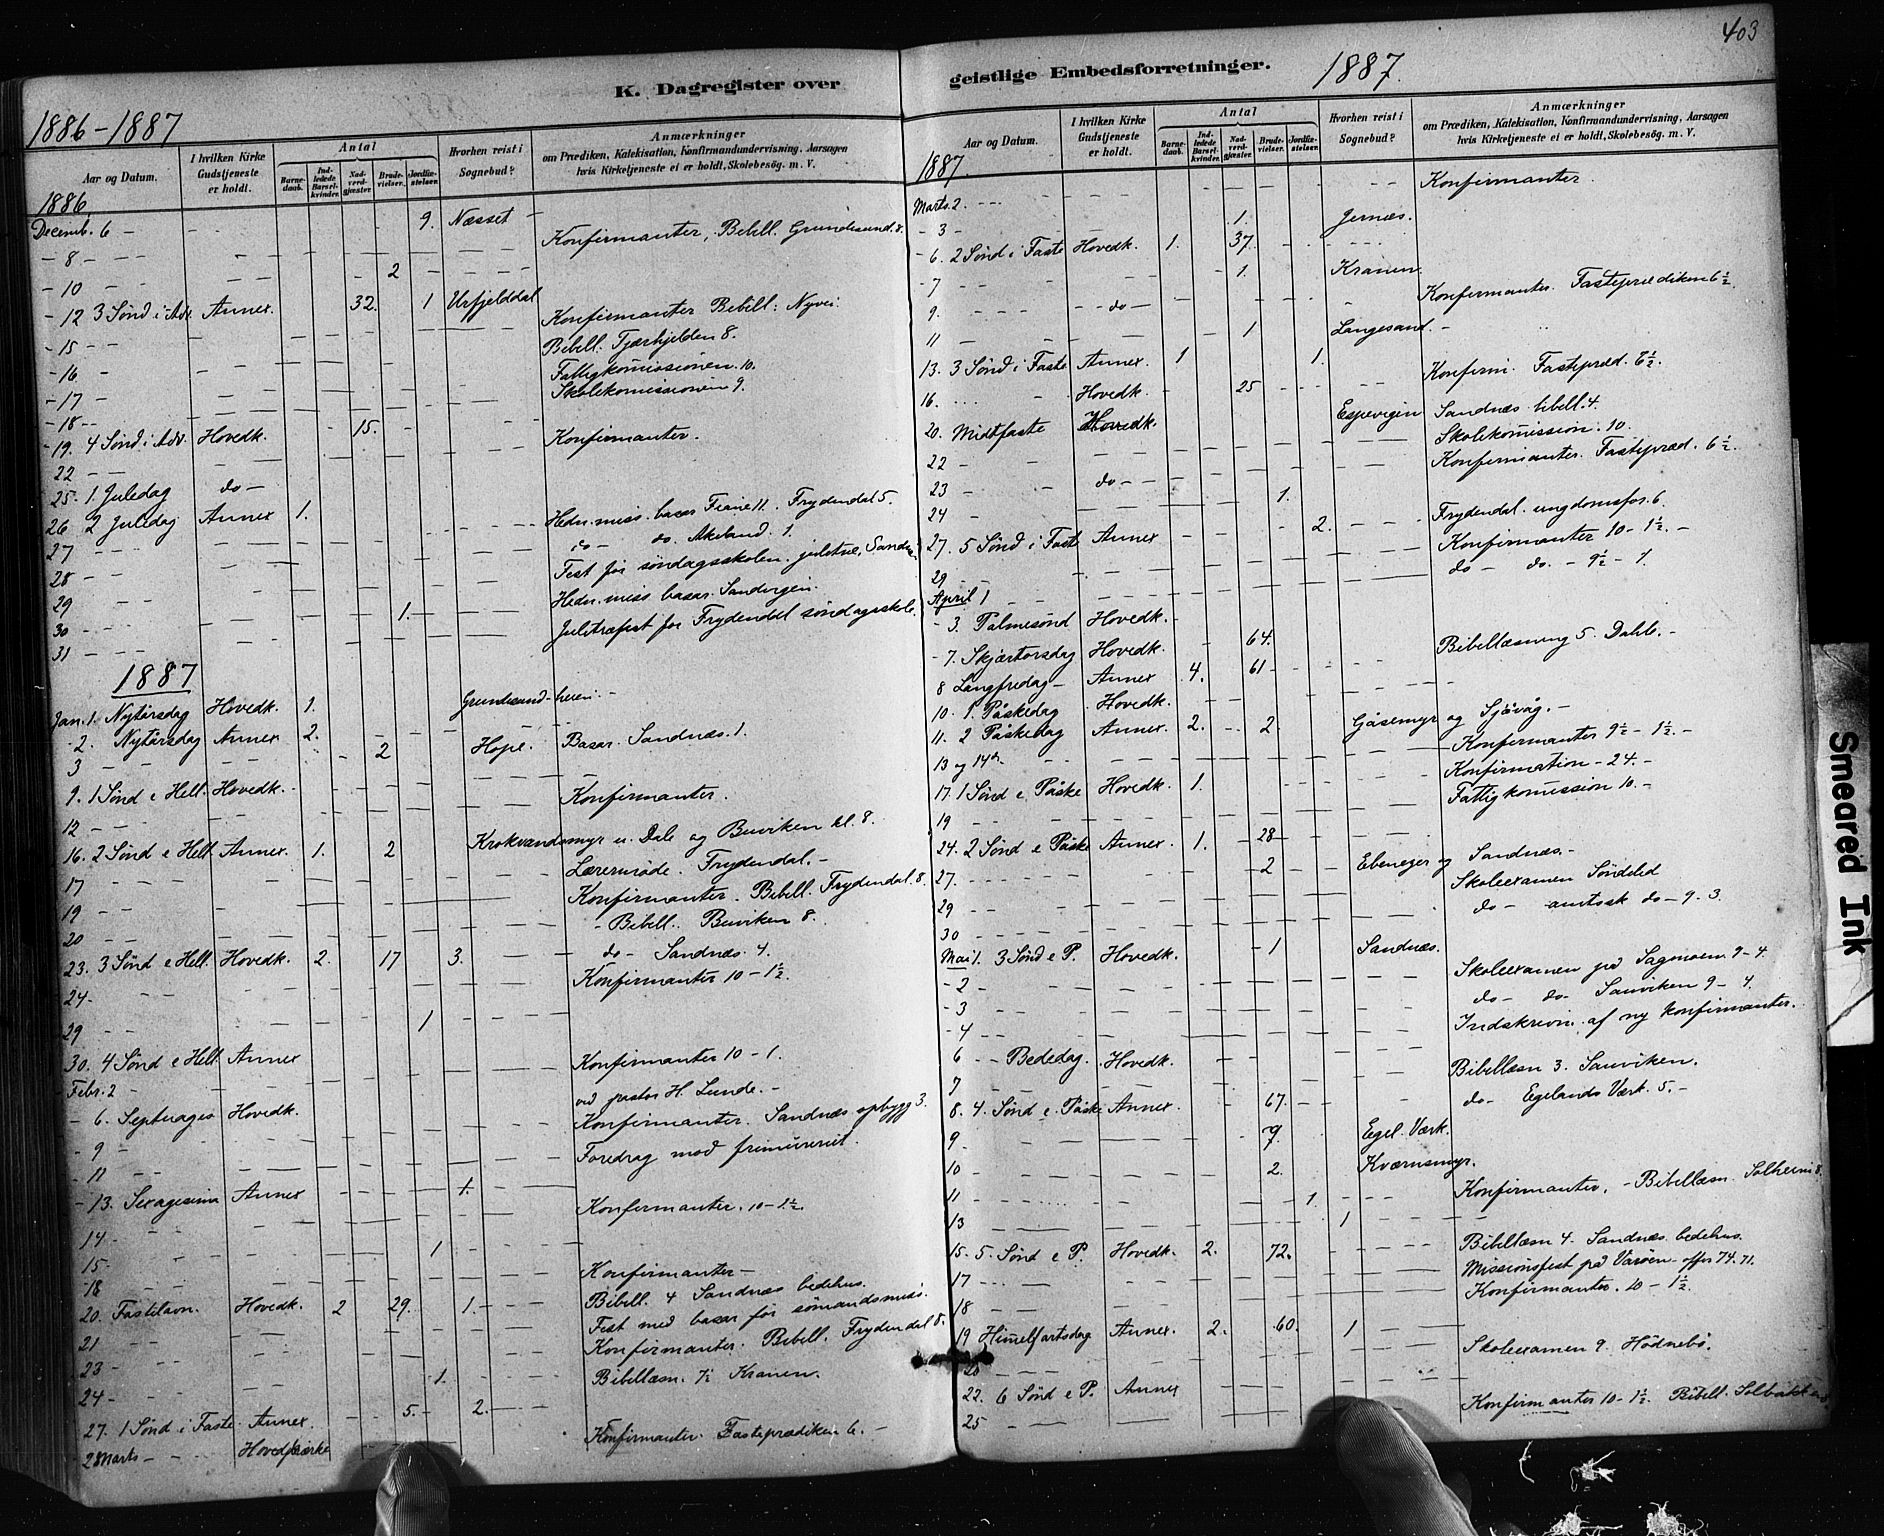 K. Dagregister over
1886-1887
Aar og Datum.
I hvilken Kirke Gudstjeneste er holdt.
Antal
Barne-daab.
Ind-ledede Barsel-kvinder.
Nad-verd-gjæster.
Brude-vielser.
Jordfæ-stelser.
Hvorhen reist i Sognebud?
Anmærkninger
om Prædiken, Katekisation, Konfirmandundervisning, Aarsagen
hvis Kirketjeneste ei er holdt, Skolebesøg. m. V.
1886
Decemb. 6 - 9. Næsset -
- 8 - - - Konfirmanter, Bibell. Grundesund. 8.
- 10 - - 2 - - -
- 12 3 Sønd i Adv. Annex. 32. 1 Urfjelddal
- 15 - - Konfirmanter Bibell: Nyvei
- 16 - Bibell. Tjærhjelden 8.
- 17 - Fattigkommissionen. 10.
- 18 - - Skolekomissionen 9.
- 19. 4 Sønd i Adv. Hovedk. 15.
22 - - Konfirmanter.
25. 1. Juledag do -
26 2 Juledag Annex 1.
27 - - - Hedn. miss. basar Fiane 11. Frydendal 5.
28 - - do - do. Akeland. 1.
29 - - Fest for søndagsskolen. juletræ, Sandn
30 - - - Hedn. miss. basar. Sandvigen.
31 - - - 1. Juletræfest for Frydendal søndagsskole.
1887
Jan. 1. Nytårsdag Hovedk. 1. Grundesund-heien -
- 2. Nytårsdag Annex 2.
3 - - 2 Hope. Basar. Sandnæs. 1.
9. 1 Sønd e Hell. Hovedk. -
12 - - - Konfirmanter.
16. 2 Sønd e Hell. Annex. 1. 2 Krokvandsmyr u. Dale og Buviken kl. 8.
17 - - - Lærermøde. Frydendal. -
19 - - Konfirmanter. Bibell. Frydendal. 8.
20 - - - Bibell. Buviken 8.
23. 3 Sønd e Hell. Hovedk. 2. 17 3. do - Sandnæs. 4.
24 - Konfirmanter 10 - 1½.
29 - - 1
30. 4 Sønd e Hell. Annex
Febr. 2 Konfirmanter 10 - 1.
- 6. Septuages Hovedk. ved pastor H. Lunde. -
- 9 - Konfirmanter. Sandnæs opbygg 3.
- 11 - - Foredrag mod frimureriet.
- 13. Sexagesima Annex 1.
14 - Konfirmanter. 10 - 1½.
15 - 1
18 - Konfirmanter -
20. Fastelavn. Hovedk. 2 29. 1. - Bibell. 4 Sandnæs bedehus.
21 - Fest med basar for sømandsmiss.
23 - Konfirmanter. Bibell. Frydendal 8.
24 - 1. Bibellæsn. 7½ Kranen.
27. 1 Sønd i Faste. Annex. 5. 2.
- 2 Marts - Hovedkirke Konfirmanter. Fasteprædiken 6. -
403
geistlige Embedsforretninger. 1887.
Aar og Datum.
I hvilken Kirke Gudstjeneste er holdt.
Antal
Barne-daab.
Ind-ledede Barsel-kvinder.
Nad-verd-gjæster.
Brude-vielser.
Jordfæ-stelser.
Hvorhen reist i Sognebud?
Anmærkninger
om Prædiken, Katekisation, Konfirmandundervisning, Aarsagen
hvis Kirketjeneste ei er holdt, Skolebesøg. m. V.
1887.
Marts. 2. - - - Konfirmanter.
- 3 - 1. Jernæs.
- 6. 2 Sønd i Faste Hovedk. 1. 37.
- 7 - - 1. Kranen.
9. - - - do - Konfirmanter. Fasteprædiken 6½.
11 - 1 Langesand. -
13. 3 Sønd i Faste Annex. 1 1.
16. - Hovedk. 25 Konfirm. Fastepræd. 6½.
20. Midtfaste Hovedk. Espevigen Sandnæs. bibell. 4.
22 - Skolekommission. 10.
23 - do - - Konfirmanter. Fastepræd. 6½.
24 - 1.
27. 5 Sønd i Faste Annex 2. Frydendal. ungdomsfor. 6.
29 Konfirmanter 10 - 1½. -
April 1 do - do. - 9½ - 1.
- 3. Palmesønd Hovedk. -
- 7. Skjærtorsdag Hovedk. 64.
8 Langfredag - Annex 4. 61 - Bibellæsning 5. Dahle. -
10. 1. Påskedag Hovedk.
11. 2 Påskedag Annex. 2. 2. Gåsemyr og Sjåvåg. -
13 og 14de Konfirmanter 9½ - 1½. -
17. 1 Sønd e. Påske Hovedk. 1. Konfirmation - 24. -
19 - Fattigkomission 10. -
24. 2 Sønd e Påske Annex. 1. 28 -
27. - - 2 Ebenezer og Sandnæs. -
29 - - Skoleexamen Søndeled
30 - - do - amtssk do - 9. 3.
Mai 1. 3 Sønd e P. Hovedk. 1 Sandnæs.
- 2 - Skoleexamen på Sagmoen 9 - 4.
- 3 do - do - Sanviken 9 - 4.
- 4 Indskrivn. af ny konfirmanter.
6 - - Bededag. Hovedk.
7 - Bibellæsn 3. Sanviken.
8. 4. Sønd e. Påske Annex. 67. do - Egelands Værk. 5. -
9 - 7. Egel. Værk.
10 - 2. Kværnsmyr.
11 - 1 Konfirmanter, - Bibellæsn. Solheim 8.
13 1
15. 5. Sønd e P. Hovedk. 2. 72. Bibellæsn 4. Sandnæs. bedehus.
17 - - - Missionsfest på Varøen - offer 74.71.
18 - - Konfirmanter. 10 - 1½.
19 Himmelfartsdag Annex. 2. 60. 1
20 - - Skoleexamen 9. Hødnebø.
22. 6 Sønd e P. Annex
25 - - Konfirmanter 10 - 1½. Bibell. Solbakken
Smeared Ink